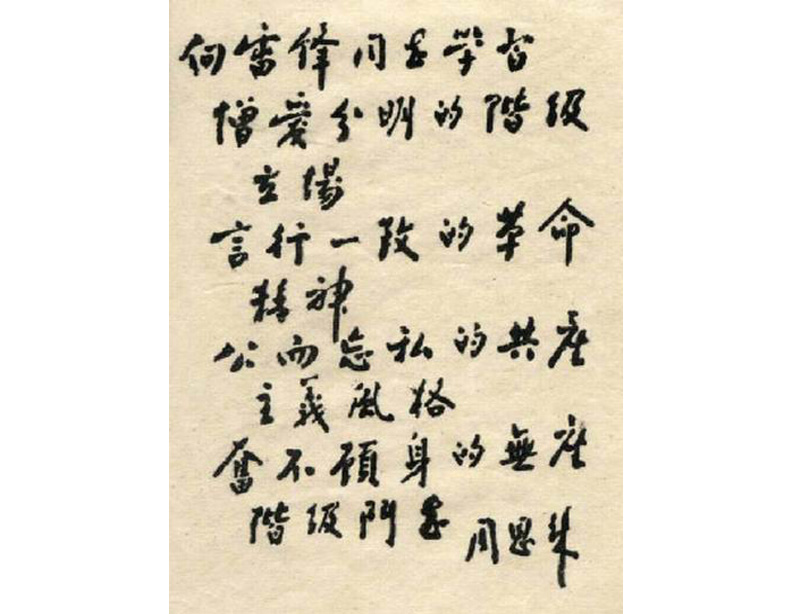 向雷锋同志学習
憎爱分明的階级
立場
言行一致的革命
精神
公而忘私的共产
主義风格
奮不顾身的無产
階级鬥志
周恩来